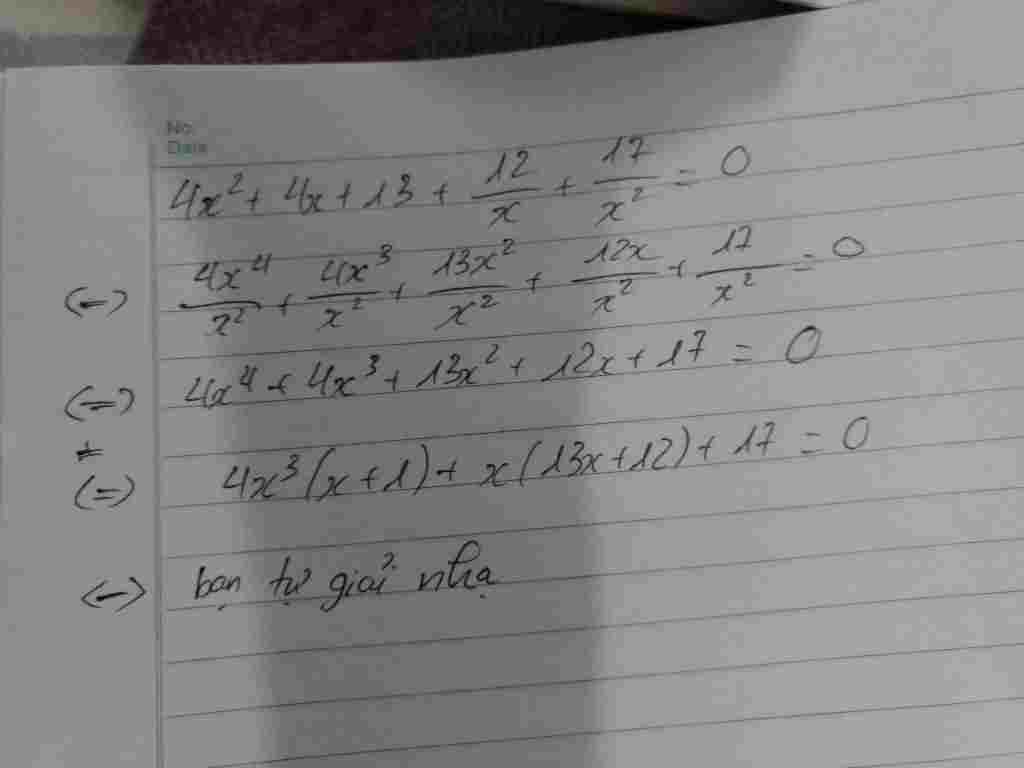 No.
Date
4x² + 4x + 13 + 12/x + 17/x² = 0
(=) 4x⁴/x² + 4x³/x² + 13x²/x² + 12x/x² + 17/x² = 0
(=) 4x⁴ + 4x³ + 13x² + 12x + 17 = 0
(=) 4x³(x+1) + x(13x+12) + 17 = 0
(=) bạn tự giải nha